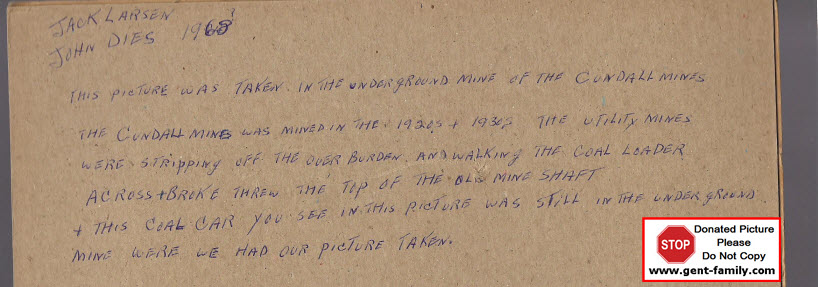 JACK LARSEN
JOHN DIES 1963?
THIS PICTURE WAS TAKEN IN THE UNDERGROUND MINE OF THE CUNDALL MINES
THE CUNDALL MINES WAS MINED IN THE 1920s + 1930s THE UTILITY MINES
WERE STRIPPING OFF THE OVER BURDEN AND WALKING THE COAL LOADER
ACROSS + BROKE THREW THE TOP OF THE OLD MINE SHAFT
+ THIS COAL CAR YOU SEE IN THIS PICTURE WAS STILL IN THE UNDERGROUND
MINE WERE WE HAD OUR PICTURE TAKEN.
STOP
Donated Picture
Please
Do Not Copy
www.gent-family.com